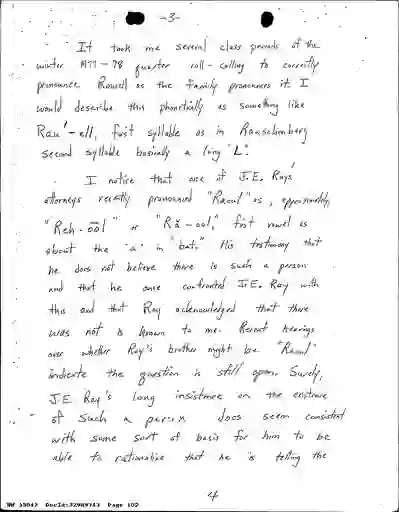 -3-
It took me several class periods of the
winter 1977-78 quarter roll-calling to correctly
pronounce Rowell as the family pronounces it. I
would describe this phonetically as something like
Rau'-ell, first syllable as in Rauschenberg
second syllable basically a long "L".
I notice that one of J.E. Rays'
attorneys recently pronounced "Raoul" as, approximately,
"Reh-ōōl" or "Ră-ool," first vowel is
about the "a" in "bat." His testimony that
he does not believe there is such a person
and that he once confronted J.E. Ray with
this and that Ray acknowledged that there
was not is known to me. Recent hearings
over whether Ray's brother might be "Raoul"
indicate the question is still open. Surely,
J.E. Ray's long insistence on the existence
of such a person does seem consistent
with some sort of basis for him to be
able to rationalize that he is telling the
4
DocId:32989743 Page 102